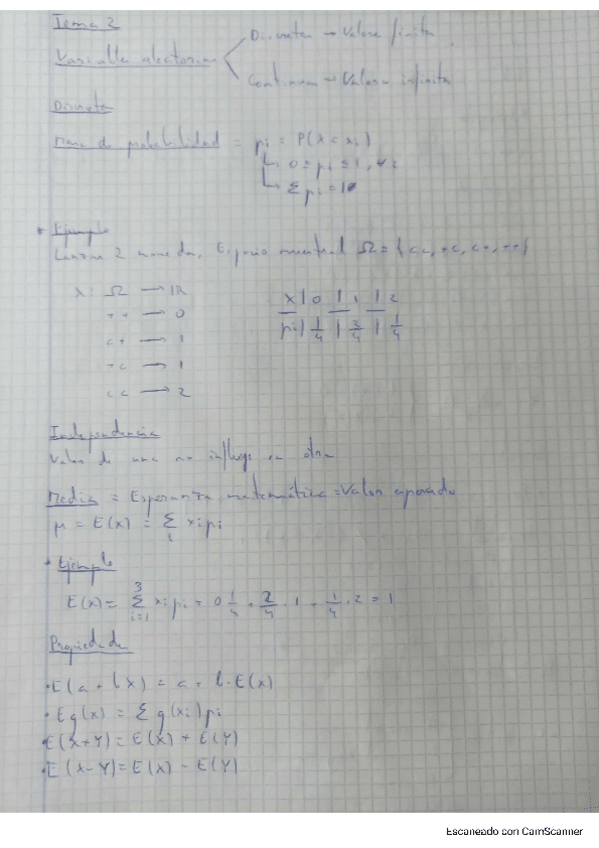 Tema 2
Variable aleatoria
Discreta → Valores finitos
Continua → Valores infinitos
Discreta
Masa de probabilidad = pi = P(X = xi)
↳ 0 ≤ pi ≤ 1, ∀i
↳ Σ pi = 1
* Ejemplo
Lanzar 2 monedas, Espacio muestral Ω = {cc, +c, c+, ++}
X: Ω → IR
++ → 0
c+ → 1
+c → 1
cc → 2
X | 0 | 1 | 2
pi | 1/4 | 2/4 | 1/4
Independencia
Valor de una no influye en otra
Media = Esperanza matemática = Valor esperado
μ = E(X) = Σ i xi pi
* Ejemplo
E(X) = Σ i=1 3 xi pi = 0 1/4 + 2/4 · 1 + 1/4 · 2 = 1
Propiedades
· E(a + bX) = a + b · E(X)
· E g(X) = Σ g(xi) pi
· E(X+Y) = E(X) + E(Y)
· E(X-Y) = E(X) - E(Y)
Escaneado con CamScanner